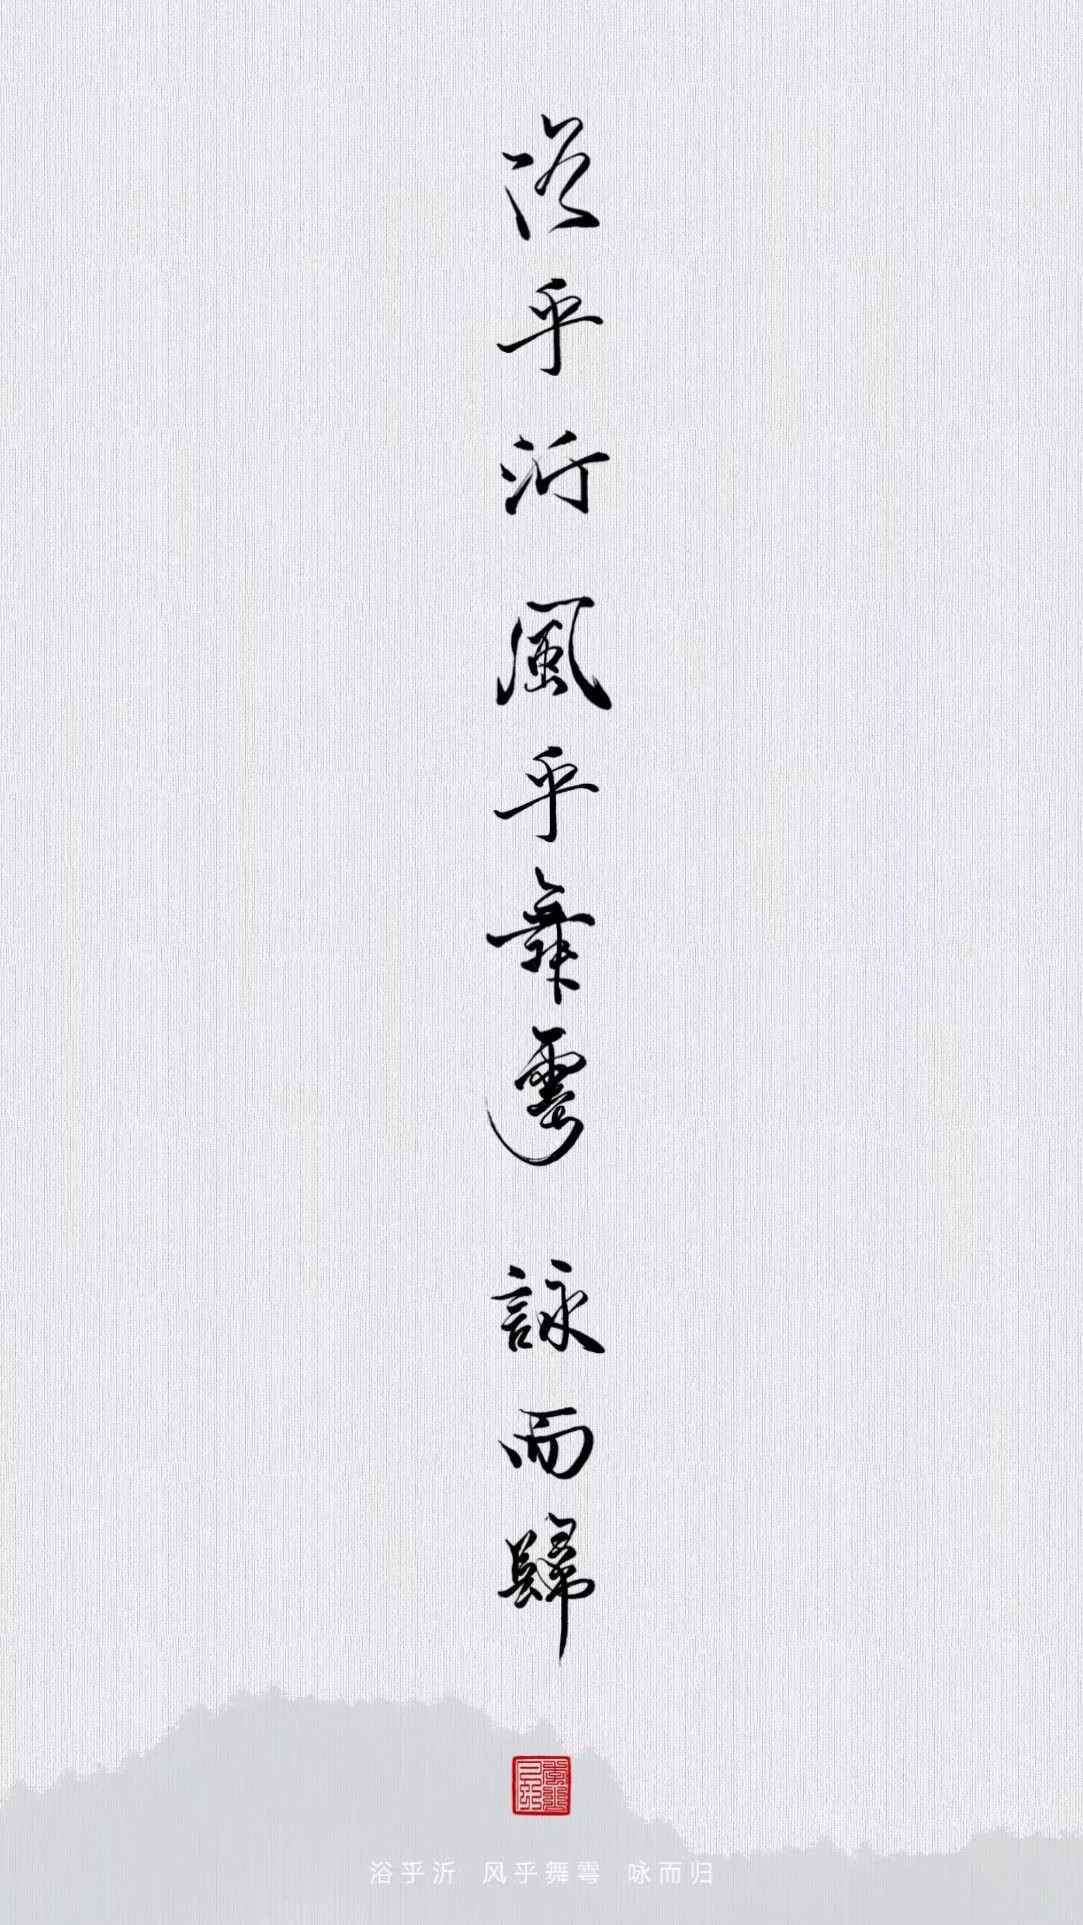 浴乎沂 風乎舞雩 詠而歸
浴乎沂 风乎舞雩 咏而归